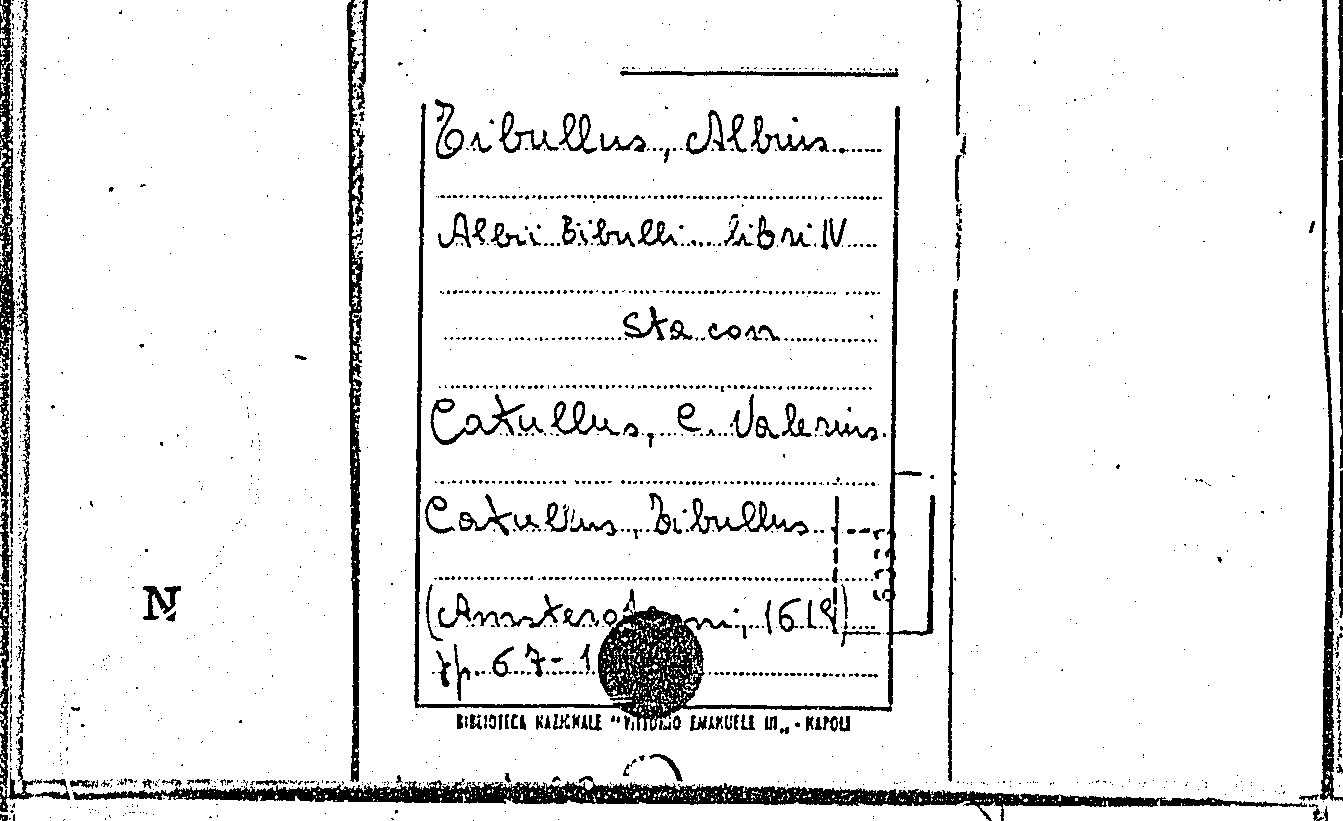 Tibullus, Albius.
Albii Tibulli... libri IV
Sta con
Catullus, C. Valerius.
Catullus, Tibullus...
(Amsterodami, 1619)
pp. 67-1
BIBLIOTECA NAZIONALE "VITTORIO EMANUELE III" - NAPOLI
N